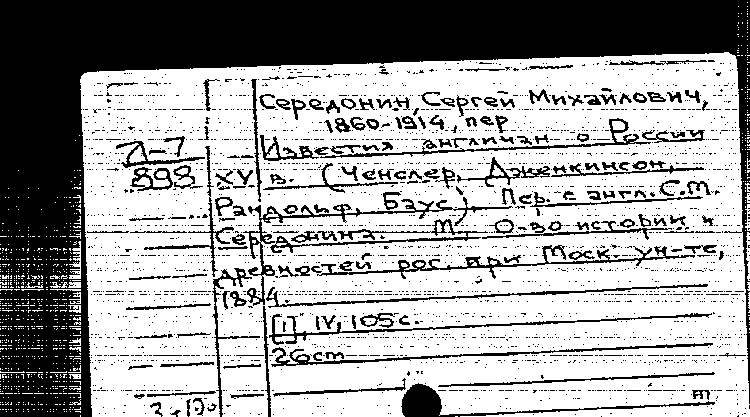 Середонин, Сергей Михайлович,
1860-1914, пер
Л-7 Известия англичан о России
898 XV в. (Ченслер, Дженкинсон,
Рандольф, Баус). Пер. с англ. С.М.
Середонина. М., О-во истории и
древностей рос. при Моск. ун-те,
1884.
[1], IV, 105 с.
26 cm